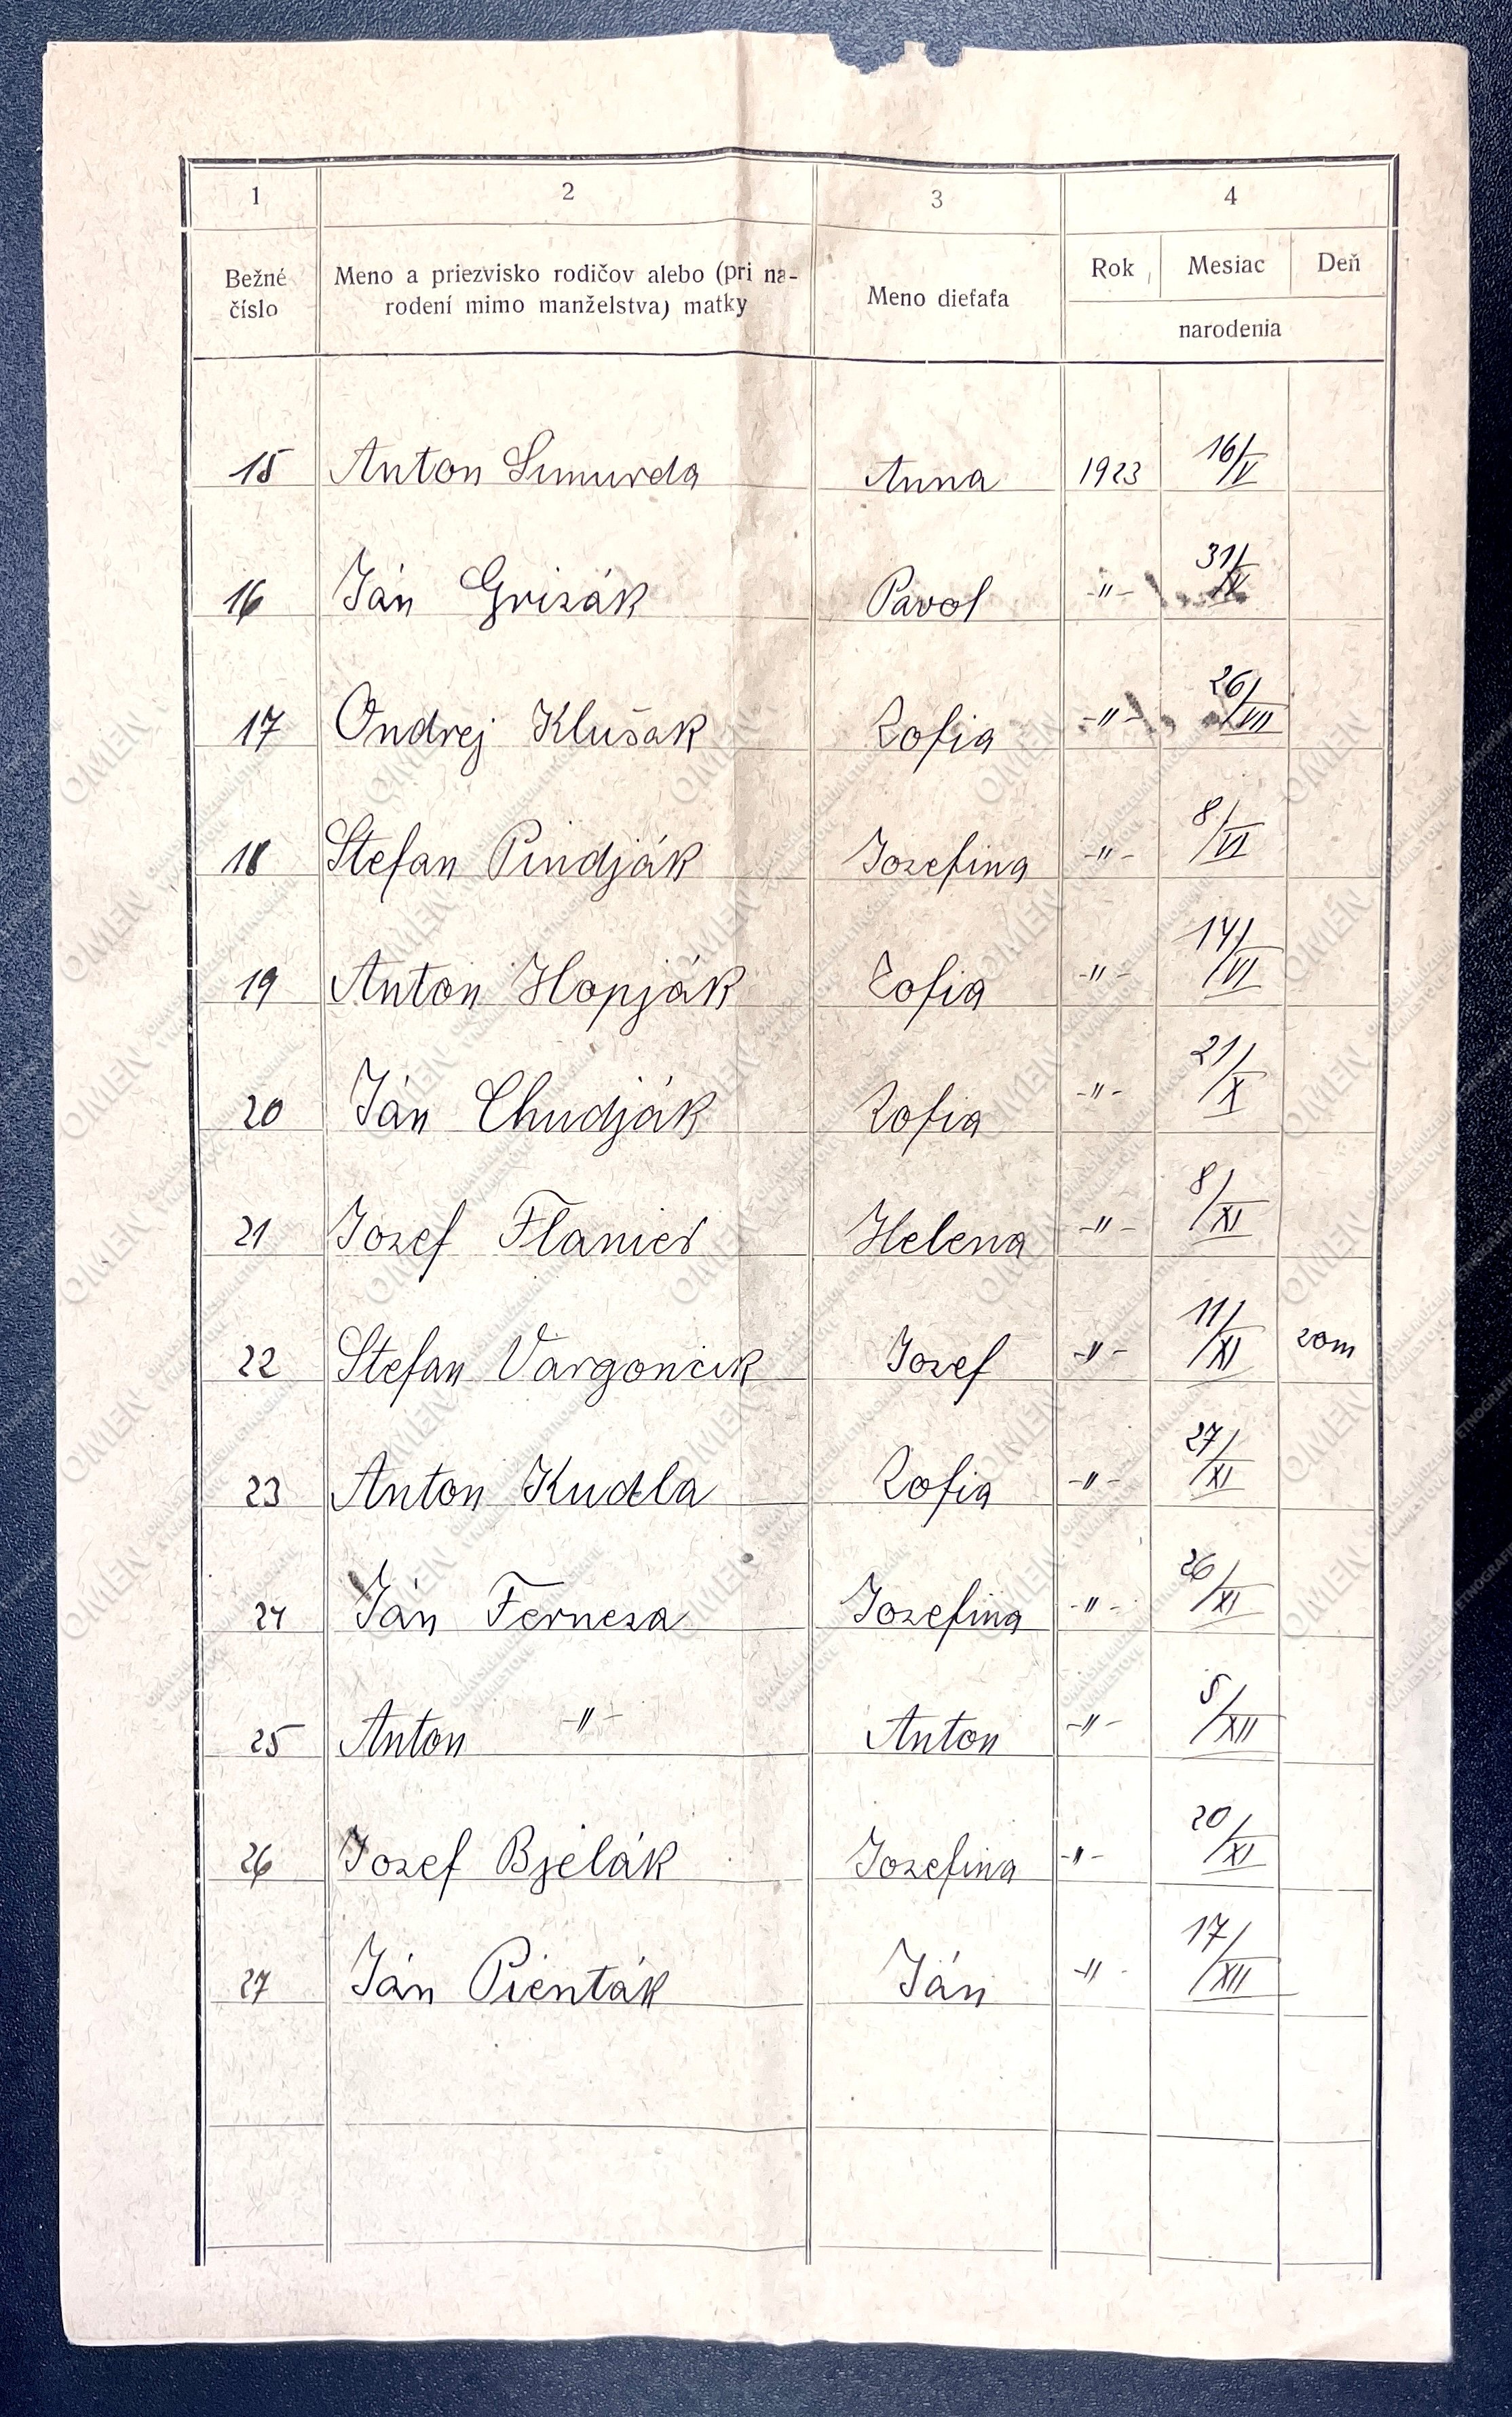 1 2 3 4
Bežné číslo
Meno a priezvisko rodičov alebo (pri na-
rodení mimo manželstva) matky
Meno dieťaťa
Rok Mesiac Deň
narodenia
15 Anton Smurda Anna 1923 16/V
16 Ján Grizák Pavol -"- 31/
17 Ondrej Klušak Zofia -"- 26/VII
18 Stefan Pindják Jozefina -"- 8/VI
19 Anton Hopják Zofia -"- 14/VI
20 Ján Chudják Zofia -"- 21/X
21 Jozef Flanier Helena -"- 8/XI
22 Stefan Vargončik Jozef -"- 11/XI zom
23 Anton Kudla Zofia -"- 27/XI
24 Ján Ferneza Jozefina -"- 26/XI
25 Anton -"- Anton -"- 5/XII
26 Jozef Bjelák Jozefina -"- 20/XI
27 Ján Pienták Ján -"- 17/XII
OMEN
ORAVSKÉ MÚZEUM ETNOGRAFIE
V NÁMESTOVE